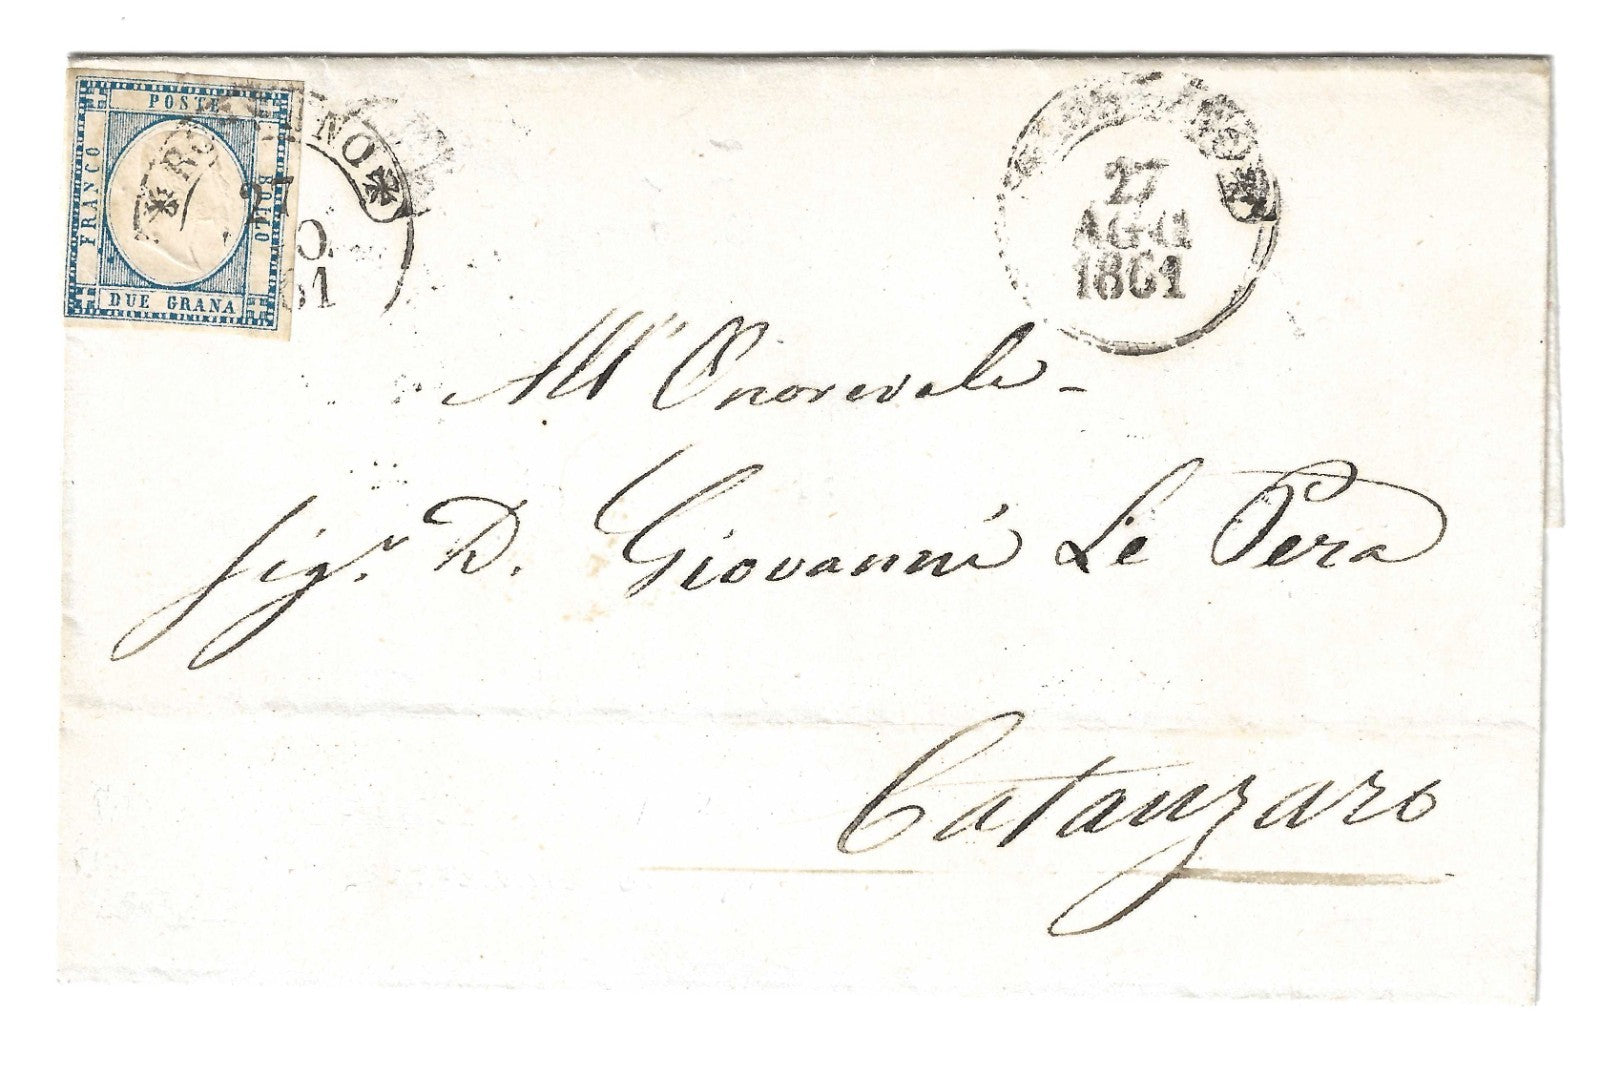 POSTE
FRANCO
BOLLO
DUE GRANA
27
61
27
AGO
1861
All' Onorevole
Sigr. D. Giovanni Le Pera
Catanzaro